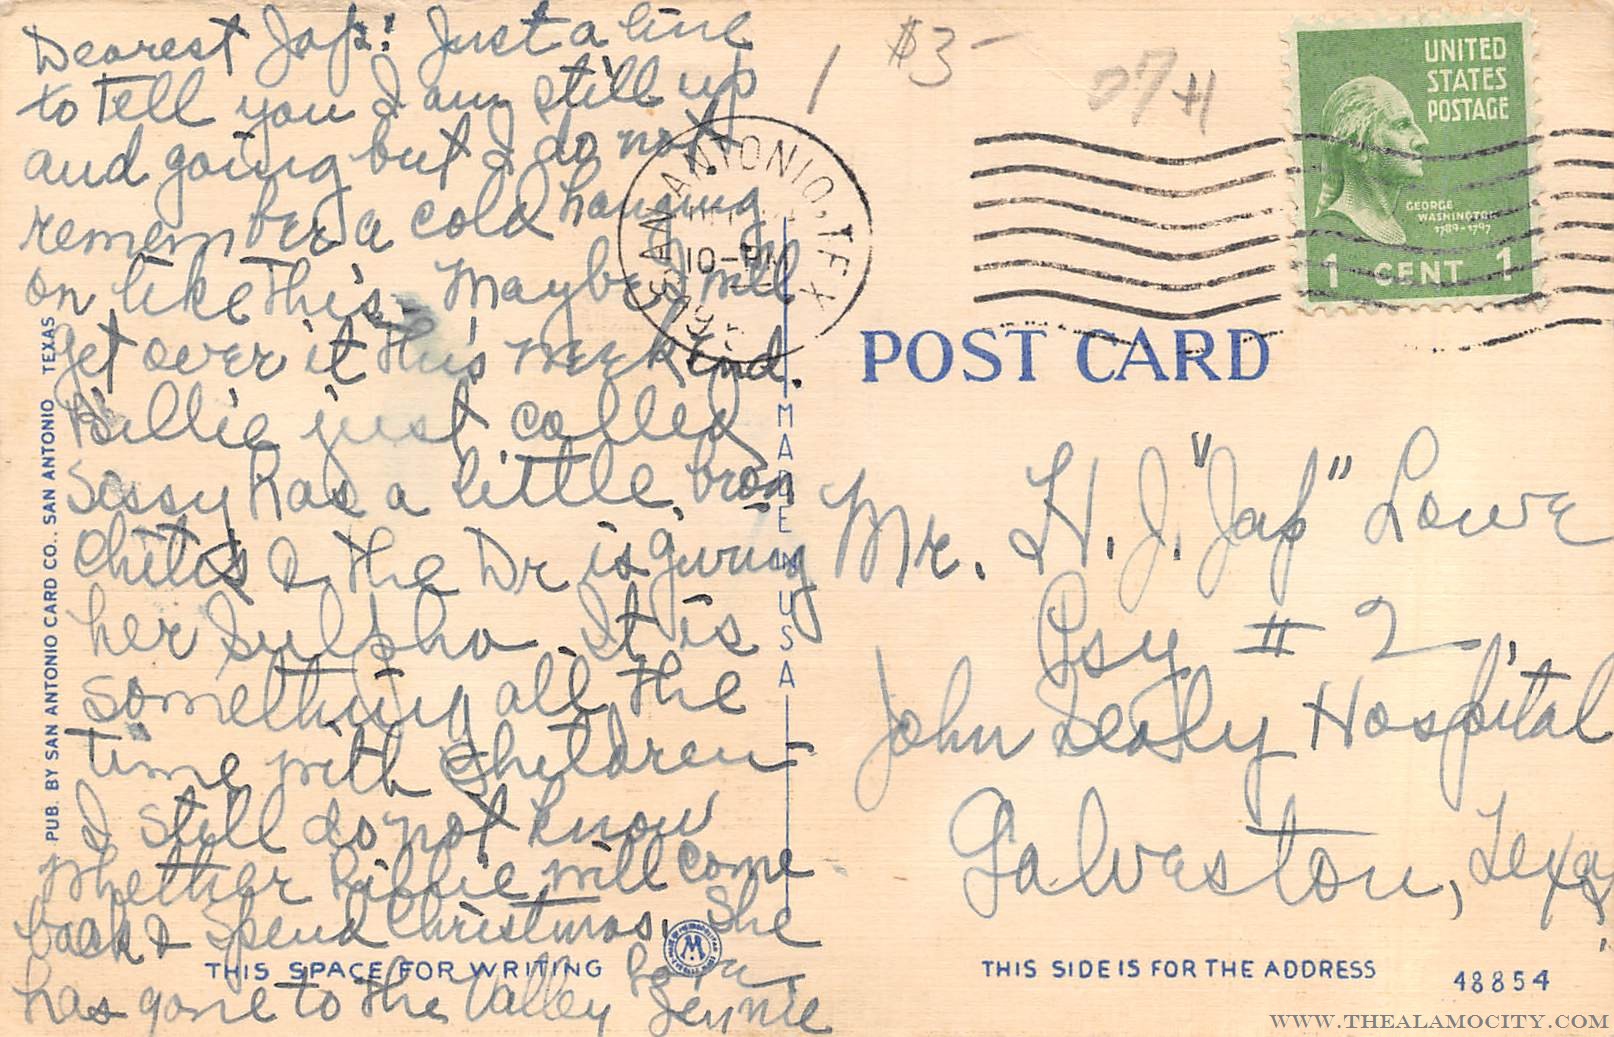 Dearest Jap: Just a line
to tell you I am still up
and going but I do not
remember a cold hanging
on like this - Maybe I will
get over it this week End.
Billie just called
Sissy has a little bron
chitis & the Dr is giving
her Sulpha. It is
something all the
time with Children -
I still do not know
whether Libbie will come
back & spend Christmas. She
has gone to the Valley
Jennie
PUB. BY SAN ANTONIO CARD CO., SAN ANTONIO TEXAS
THIS SPACE FOR WRITING
MADE IN USA
W
1 $3-
SAN ANTONIO, TEX
10-PM
19
UNITED
STATES
POSTAGE
GEORGE
WASHINGTON
1789-1797
1 CENT 1
POST CARD
Mr. H. J. "Jap" Lowe
Psy # 2,
John Sealy Hospital
Galveston, Texas
THIS SIDE IS FOR THE ADDRESS
48854
WWW.THEALAMOCITY.COM